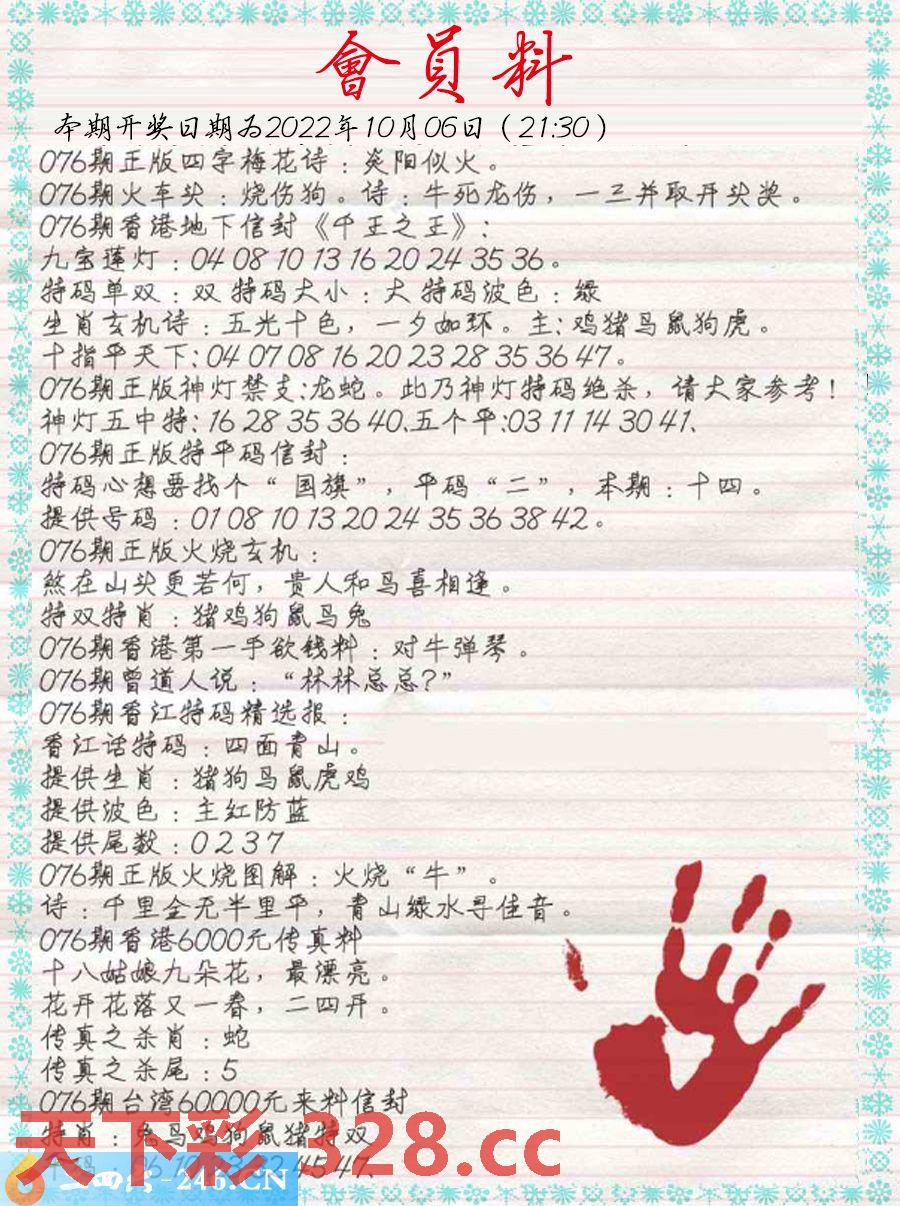 會員料
本期开奖日期为2022年10月06日（21:30）
076期正版四字梅花诗：炎阳似火。
076期火车头：烧伤狗。诗：牛死龙伤，一三并取开头奖。
076期香港地下信封《千王之王》：
九宝莲灯：04 08 10 13 16 20 24 35 36。
特码单双：双 特码大小：大 特码波色：绿
生肖玄机诗：五光十色，一夕如环。主：鸡猪马鼠狗虎。
十指平天下：04 07 08 16 20 23 28 35 36 47。
076期正版神灯禁支：龙蛇。此乃神灯特码绝杀，请大家参考！
神灯五中特：16 28 35 36 40、五个平：03 11 14 30 41、
076期正版特平码信封：
特码心想要找个“国旗”，平码“二”，本期：十四。
提供号码：01 08 10 13 20 24 35 36 38 42。
076期正版火烧玄机：
煞在山头更若何，贵人和马喜相逢。
特双特肖：猪鸡狗鼠马兔
076期香港第一手欲钱料：对牛弹琴。
076期曾道人说：“林林总总？”
076期香江特码精选报：
香江话特码：四面青山。
提供生肖：猪狗马鼠虎鸡
提供波色：主红防蓝
提供尾数：0 2 3 7
076期正版火烧图解：火烧“牛”。
诗：千里金无半里平，青山绿水寻佳音。
076期香港6000元传真料
十八姑娘九朵花，最漂亮。
花开花落又一春，二四开。
传真之杀肖：蛇
传真之杀尾：5
076期台湾60000元来料信封
特肖：兔马鸡狗鼠猪特双
天下彩328.cc
45 47、
-246.CN